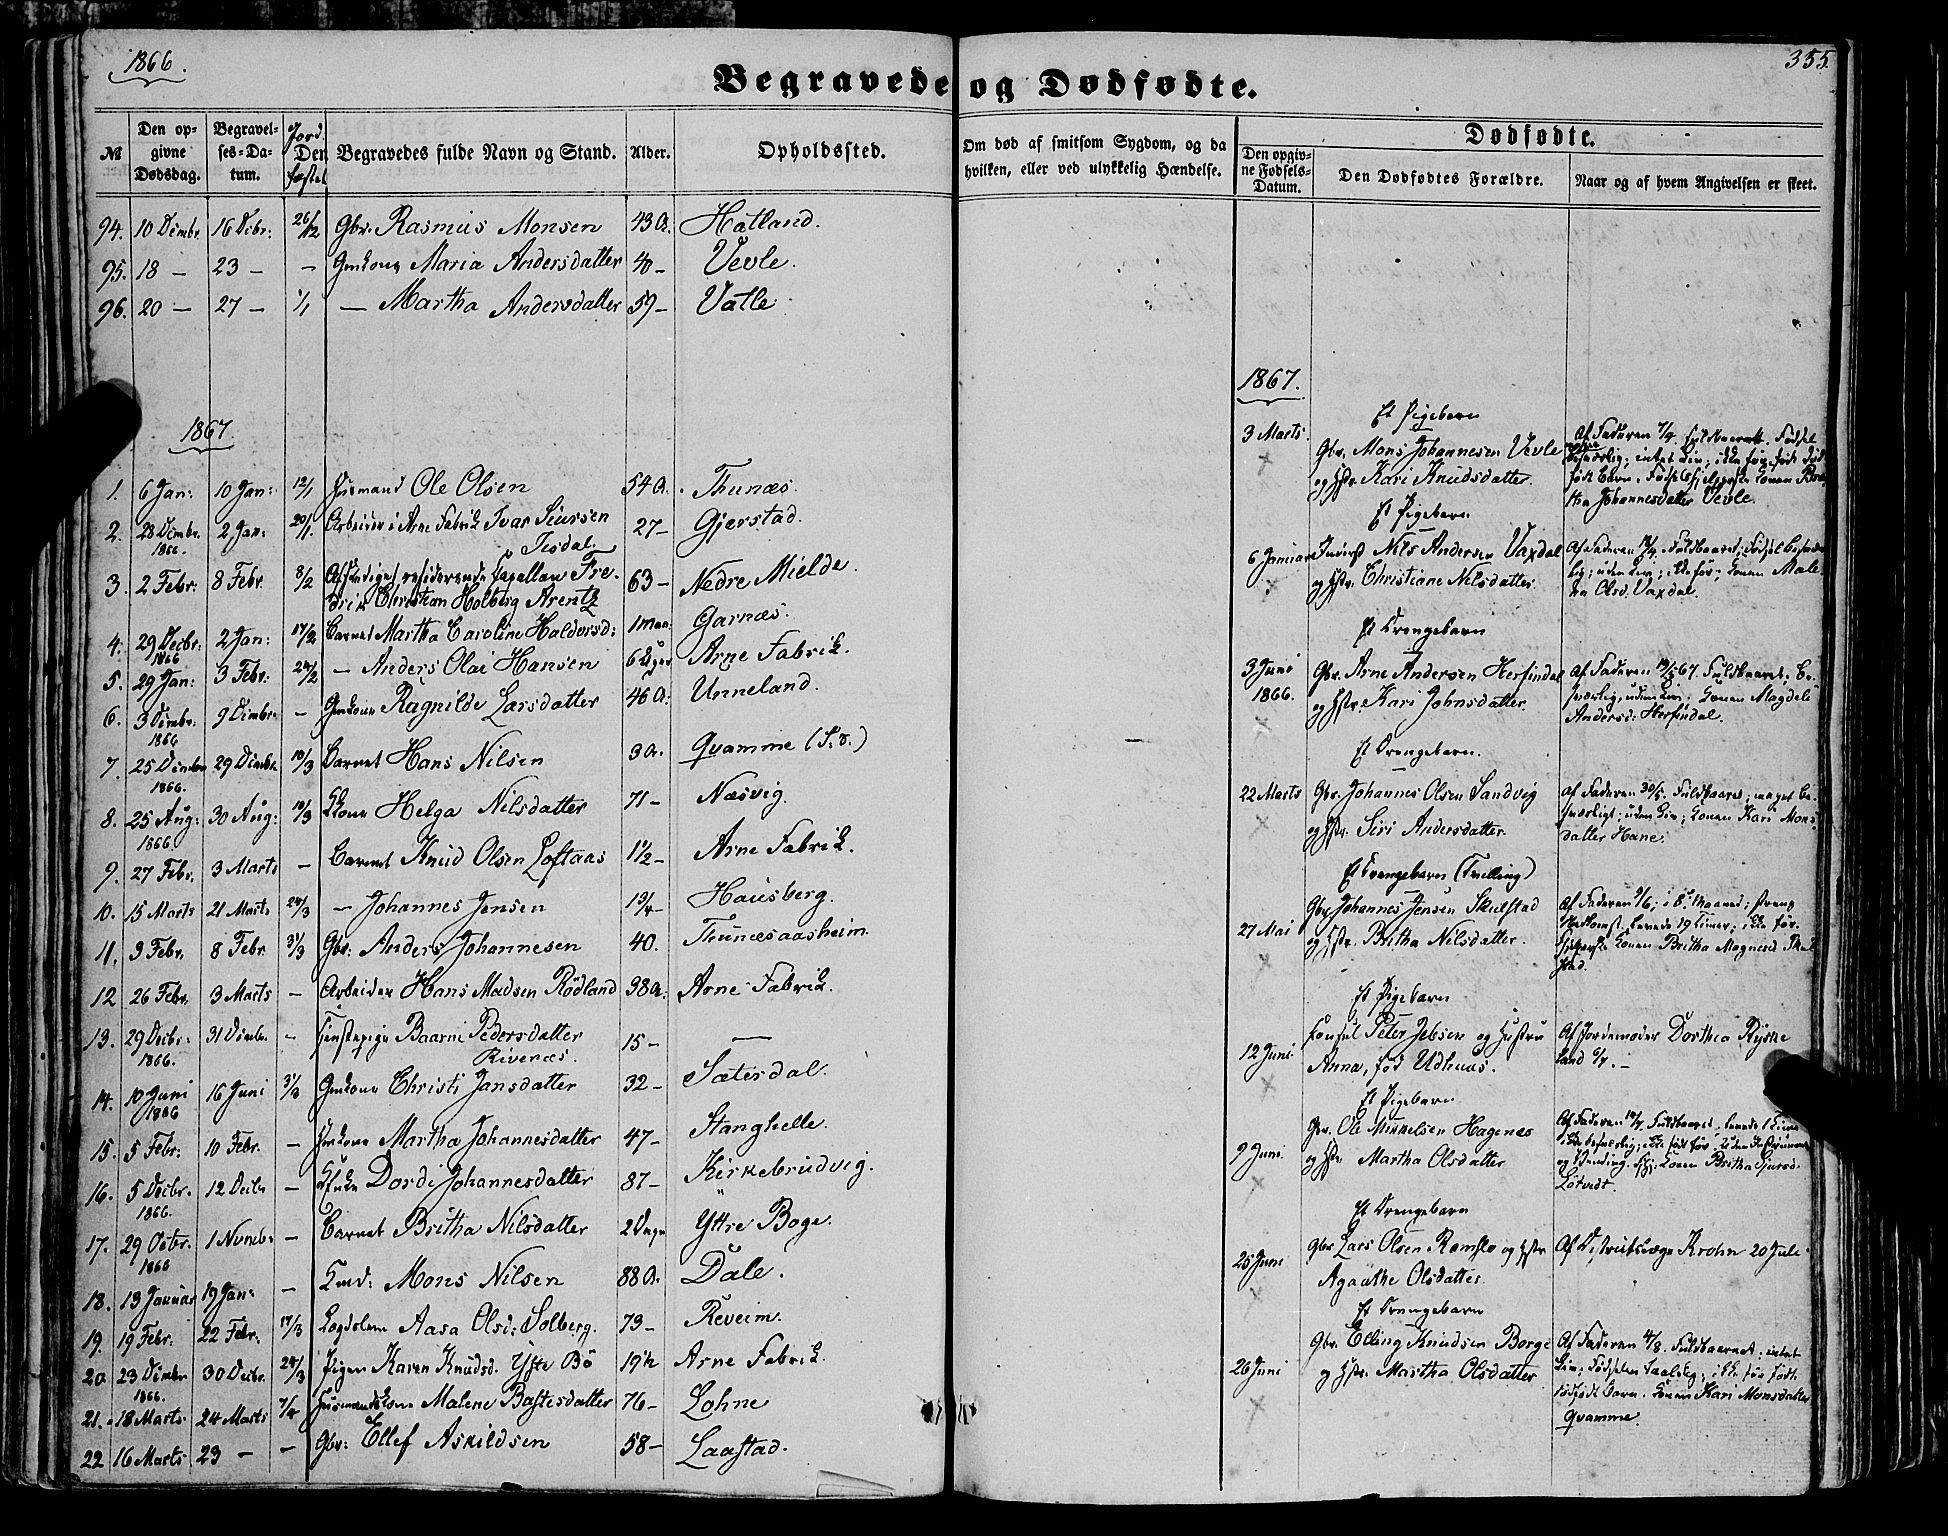 1866.
355
Begravede og Dødfødte.
№ Den opgivne Dødsdag. Begravelses-Datum. Jord Den fæstet Begravedes fulde Navn og Stand. Alder. Opholdssted. Om død af smitsom Sygdom, og da hvilken, eller ved ulykkelig Hændelse.
Dødfødte.
Den opgivne Fødsels-Datum. Den Dødfødtes Forældre. Naar og af hvem Angivelsen er skeet.
94. 10 Dcmbr. 16 Dcbr: 26/12 Gbr. Rasmus Monsen 43 A. Hatland.
95. 18 — 23 — — Gmkone Maria Andersdatter 40 — Vevle.
96. 20 — 27 — 1/1 — Martha Andersdatter 59 — Vatle.
1867
1. 6 Jan: 10 Jan: 12/1 Husmand Ole Olsen 54 A. Thunæs.
2. 28 Dcmbr. 1866. 2 Jan: 20/1 Arbeider i Arne Fabrik Ivar Siursen Tisdal. 27 — Gjerstad.
3. 2 Febr: 8 Febr. 8/2 Afskediget residerende Capellan Fredrik Christian Holberg Arentz 63 — Nedre Mielde.
4. 29 Decbr. 1866 2 Jan: 17/2 Barnet Martha Caroline Haldorsd: 1 Maan: Garnæs.
5. 29 Jan: 3 Febr: 24/2 — Anders Olai Hansen 6 Uger Arne Fabrik.
6. 3 Dcmbr. 1866 9 Dcmbr. — Gmkone Ragnilde Larsdatter 46 A. Unneland.
7. 25 Dcmbr 1866. 29 Dcmbr. 10/3 Barnet Hans Nilsen 3 A. Qvamme
8. 25 Aug: 1866. 30 Aug: 10/3 Kone Helga Nilsdatter 71 — Næsvig.
9. 27 Febr. 3 Marts — Barnet Knud Olsen Loftaas 1½ — Arne Fabrik.
10. 15 Marts 21 Marts 24/3 — Johannes Jensen Hausberg.
11. 3 Febr. 8 Febr. 31/3 Gbr. Anders Johannesen 40. Thunæsaasheim.
12 26 Febr. 3 Marts — Arbeider Hans Madsen Rødland 38 A. Arne Fabrik.
13. 29 Decbr: 1866. 31 Dcmbr. — Tjenstepige Baarni Pedersdatter Rivenæs. 15 — —
14. 10 Juni 1866 16 Juni 31/3 Gmkone Christi Jansdatter 32 — Sætersdal.
15. 5 Febr: 10 Febr. — Martha Johannesdatter 47 — Stanghelle.
16. 5 Decbr. 1866. 12 Decbr — Enke Dordi Johannesdatter 87 — Kirkebrudvig.
17. 29 Octbr. 1866 1 Nvmbr — Barnet Britha Nilsdatter 2 Dage Yttre Boge.
18. 13 Januar 19 Jan: — Kmd: Mons Nilsen 88 A. Dale.
19. 19 Febr. 22 Febr. 17/3 Lægdslem Aasa Olsd: Solberg. 73 — Reveim.
20 23 Dcmbr 1866. 30 Decbr. 24/3 Pigen Karen Knudsd. Yste Bö 19½ Arne Fabrik.
21. 18 Marts 24 Marts 7/4 Husmandskone Malene Bastesdatter 76 — Lohne
22 16 Marts 23 — — Gbr: Ellef Askildsen 58 — Laastad.
1867.
Et Pigebarn
3 Marts. Gbr. Mons Johannesen Vevle og Hstr. Kari Knudsdatter. Af Faderen 7/4. Fuldbaaret. Fødsel besværlig; intet Liv; ikke før født dødfødt Barn. Fødselshjelperske Konen Johannesdatter Vevle.
Et Pigebarn
6 Januar Inderst Nils Andersen Vaxdal og Hstr. Christiane Nilsdatter. Af Faderen Fuldbaaret; Fødsel besværlig; uden Liv; ikke før; Konen Malena Olsd. Vaxdal.
Et Drengebarn
3 Juni 1866. Gbr. Arne Andersen Herfindal og Hstr. Kari Johnsdatter. Af Faderen 67. Fuldbaaret. Besværlig; uden Liv. Konen Magdeli Andersd: Herfindal.
Et Drengebarn.
22 Marts Gbr. Johannes Olsen Sandvig og Hstr. Siri Andersdatter. Af Faderen 30/5. Fuldbaaret; meget besværligt; uden Liv; Konen Kari Monsdatter Hane.
Et Drengebarn (Tvilling)
27 Mai Gbr Johannes Jensen Skulstad og Hstr. Britha Nilsdatter. Af Faderen 9/6; i 8de Maaned; levede 19 Timer; ikke før. Konen Britha Magnesd Skulstad.
Et Pigebarn
12 Juni Konsul Peter Jebsen og Hustru Anna, fød Udhuus. Af Jordemoder Dorthea Rysseland 6/7. —
Et Pigebarn
9 Juni. Gbr. Ole Mikkelsen Hagenæs og Hstr. Martha Olsdatter Af Faderen Fuldbaaret. levede 1 Time ikke besværlig; ikke født før; og Vending. Hj: Konen Britha Gjursd. Lötvedt.
Et Drengebarn
25 Juni Gbr Lars Olsen Romslo og Hstr Agaathe Olsdatter. Af Districtslæge Krohn 20 Juli.
Et Drengebarn
26 Juni Gbr. Elling Knudsen Borge og Hstr. Martha Olsdatter Af Faderen 4/8. Fuldbaaret; intet Liv; Fødselen taalelig; ikke før født dødfødt Barn. Konen Kari Monsdatter Qvamme.